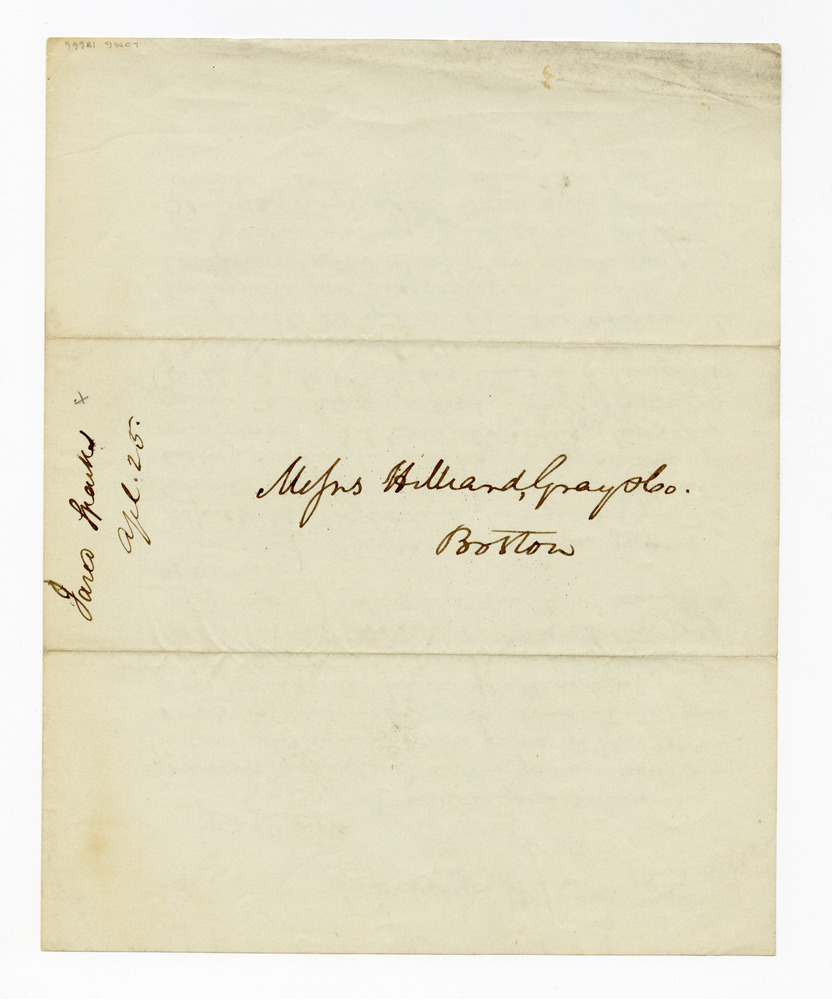 Messrs Hilliard, Gray & Co.
Boston
Jared Sparks
Apl. 25.
x